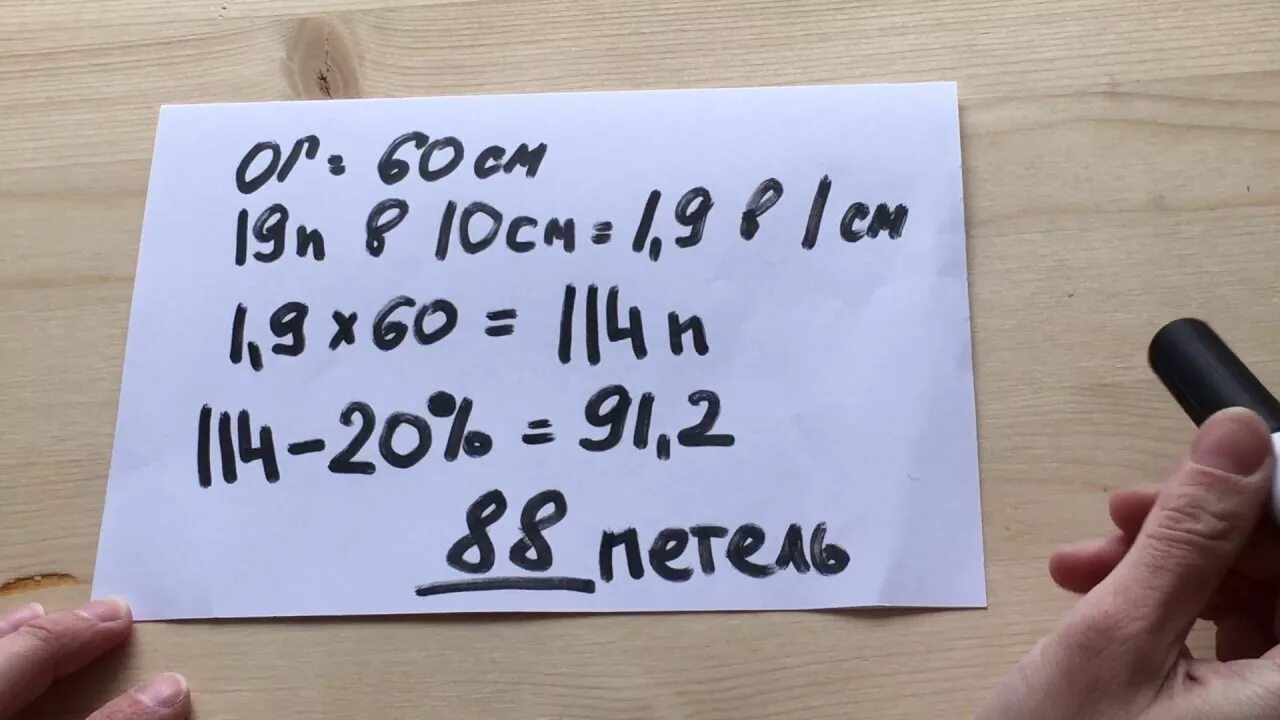 ОГ = 60 см
19п в 10 см = 1,9 в 1 см
1,9 × 60 = 114 п
114 - 20% = 91,2
88 петель